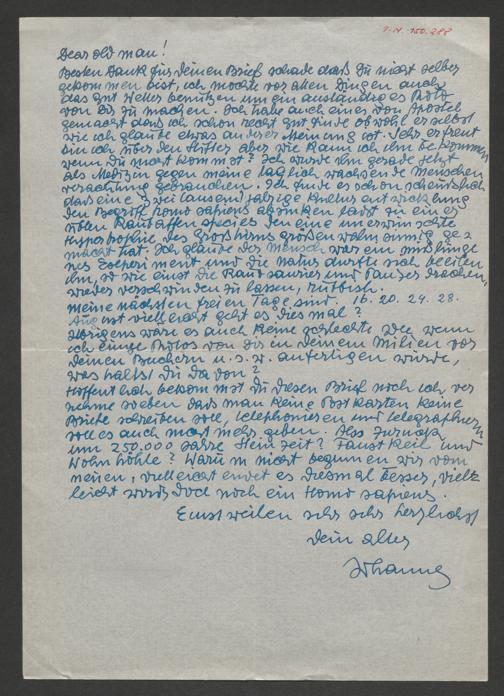 I.N. 150.288
Dear old man!
Besten Dank für Deinen Brief schade daß Du nicht selber
gekommen bist, ich möchte vor allen Dingen auch
das gut Wetter benützen um ein anständiges Bild
von Dir zu machen. Ich habe auch eines von Apostel
gemacht das ich schon recht gut finde obwohl er selbst
wie ich glaube etwas anderer Meinung ist. Sehr erfreut
bin ich über den Stifter aber wie kann ich ihn bekommen
wenn Du nicht kommst? Ich würde ihn gerade jetzt
als Medizin gegen meine täglich wachsende Menschen
verachtung gebrauchen. Ich finde es schon scheußlich
daß eine zweitausendjährige Kultur entwicklung
den Begriff homo sapiens absinken lässt zu einer
üblen Raubaffen species den eine unerwünschte
Hypertrophie des Großhirns größenwahnsinnig ge=
macht hat. Ich glaube der Mensch war ein mißlunge
nes Experiment und die Natur dürfte sich beeilen
ihn, so wie einst die Raubsaurier und Panzer drachen,
wieder verschwinden zu lassen,
meine nächsten freien Tage sind. 16. 20. 24. 28.
August vielleicht geht es dies mal?
Übrigens wäre es auch keine schlechte Idee wenn
ich einige Photos von Dir in Deinem Milieu vor
Deinen Büchern u. s. w. anfertigen würde,
was hältst Du davon?
Hoffentlich bekommst Du diesen Brief noch ich ver
nehme soeben dass man keine Postkarten keine
Briefe schreiben soll, telephonieren und telegraphieren
soll es auch nicht mehr geben. Also zurück
um 250.000 Jahre Steinzeit? Faustkeil und
Wohnhöhle? Warum nicht beginnen wir vom
neuen, vielleicht endet es diesmal besser, viel=
leicht wird's doch noch ein Homo sapiens.
Einstweilen sehr sehr herzlichst
Dein alter
Johannes